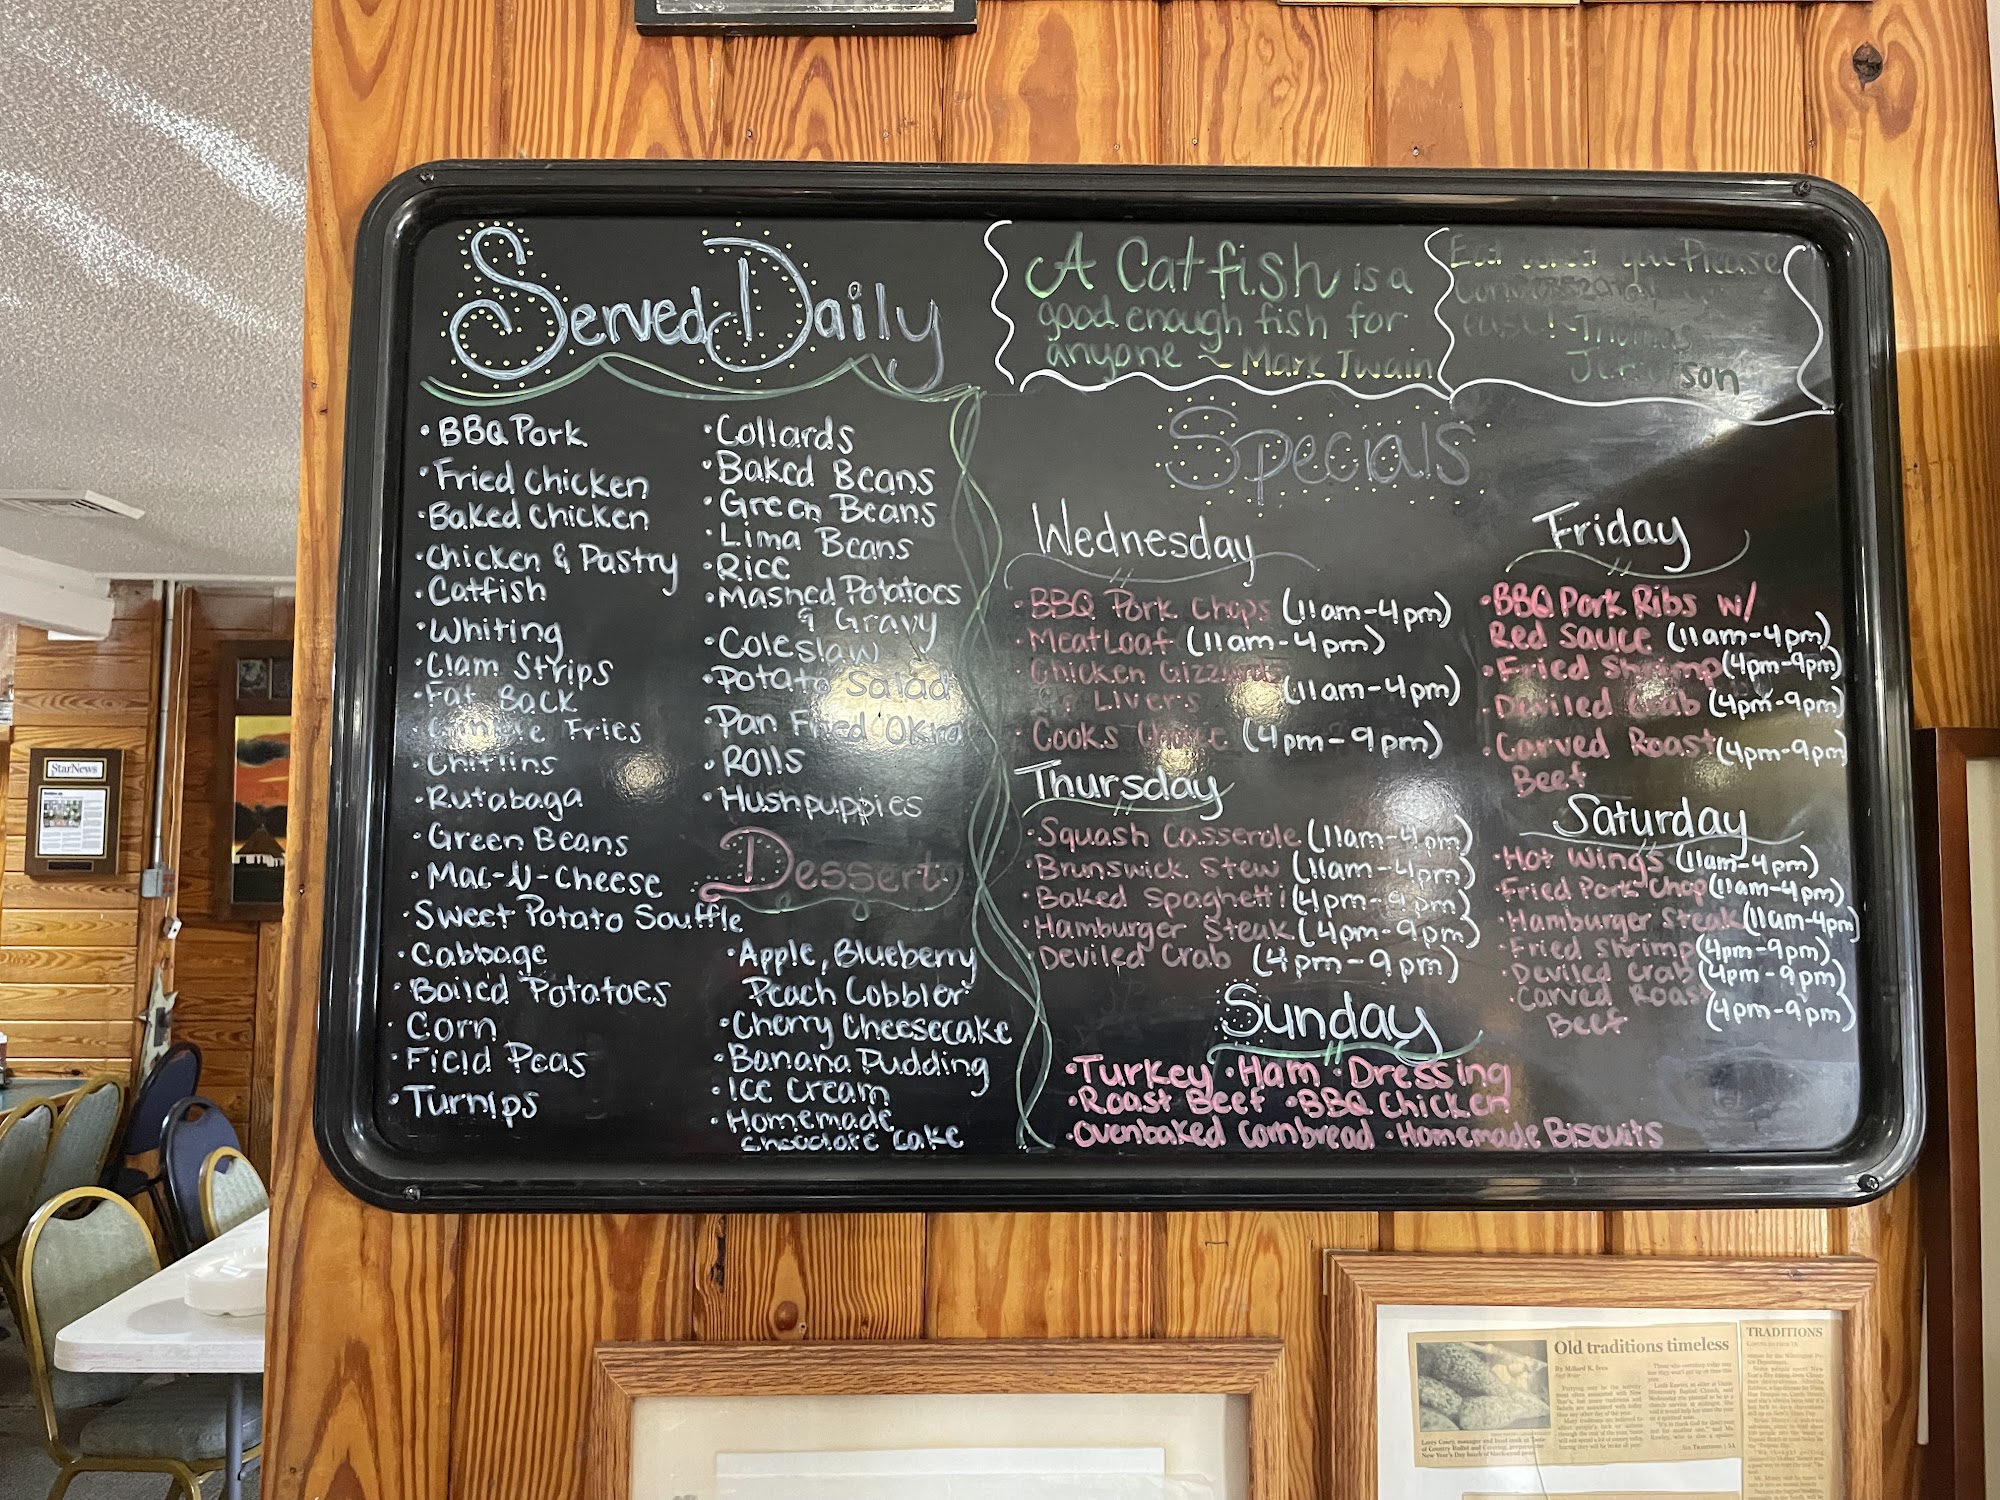 Served Daily
• BBQ Pork
• Fried Chicken
• Baked Chicken
• Chicken & Pastry
• Catfish
• Whiting
• Clam Strips
• Fat Back
Fries
• Chitlins
• Rutabaga
• Green Beans
• Mac-N-Cheese
• Sweet Potato Souffle
• Cabbage
• Boiled Potatoes
• Corn
• Field Peas
• Turnips
• Collards
• Baked Beans
• Green Beans
• Lima Beans
• Rice
• Mashed Potatoes
& Gravy
• Coleslaw
• Potato Salad
• Pan Fried Okra
• Rolls
• Hushpuppies
Dessert
• Apple, Blueberry
Peach Cobbler
• Cherry Cheesecake
• Banana Pudding
• Ice Cream
• Homemade
Chocolate Cake
A Catfish is a
good enough fish for
anyone ~ Mark Twain
Eat what you Please
Thomas
Jefferson
Specials
Wednesday
• BBQ Pork Chops (11am-4pm)
• Meatloaf (11am-4pm)
• Chicken Gizzards
Livers (11am-4pm)
• Cooks Choice (4pm-9pm)
Thursday
• Squash Casserole (11am-4pm)
• Brunswick Stew (11am-4pm)
• Baked Spaghetti (4pm-9pm)
• Hamburger Steak (4pm-9pm)
• Deviled Crab (4pm-9pm)
Friday
• BBQ Pork Ribs w/
Red Sauce (11am-4pm)
• Fried Shrimp (4pm-9pm)
• Deviled Crab (4pm-9pm)
• Carved Roast (4pm-9pm)
Beef
Saturday
• Hot Wings (11am-4pm)
• Fried Pork Chop (11am-4pm)
• Hamburger Steak (11am-4pm)
• Fried Shrimp (4pm-9pm)
• Deviled Crab (4pm-9pm)
• Carved Roast
Beef (4pm-9pm)
Sunday
• Turkey • Ham • Dressing
• Roast Beef • BBQ Chicken
• Ovenbaked Cornbread • Homemade Biscuits
StarNews
Old traditions timeless
TRADITIONS